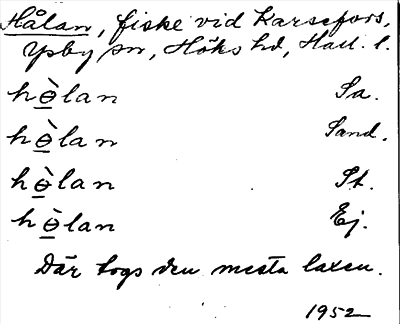 Hålan, fiske vid Karsefors,
Ysby sn, Höks hd, Hall. l.
hɵ̀lan Sa.
hɵ̀lan Sand.
hɵ̀lan St.
hɵ̀lan Ej.
Där togs den mesta laxen.
1952